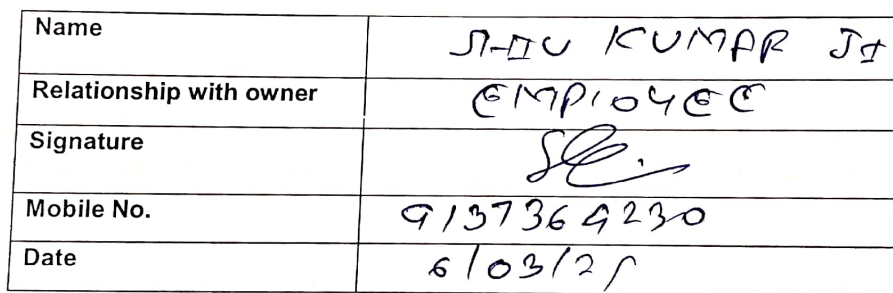 Name KUMAR
Relationship with owner EMPIOYEE
Signature
Mobile No. 9137369230
Date 6/03/25